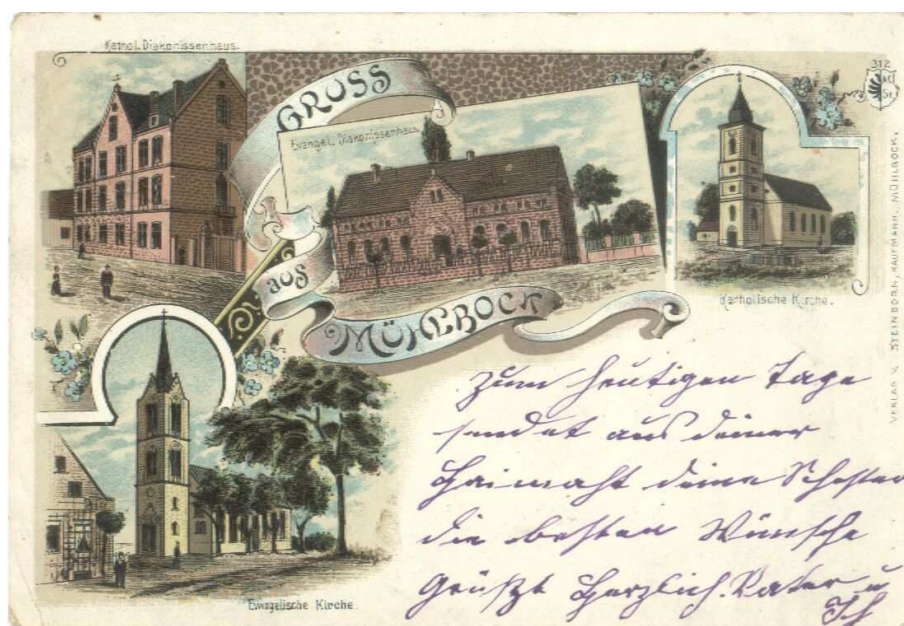 Kathol. Diakonissenhaus.
GRUSS
aus
MÜHLBOCK
Evangel. Diakonissenhaus.
312
Katholische Kirche.
VERLAG V. STEINBORN, KAUFMANN, MÜHLBOCK.
Evangelische Kirche.
Zum heutigen Tage
sendet aus deiner
Heimaht deine Schester
die besten Wünsche
Grüßt Herzlich Vater u
Ich